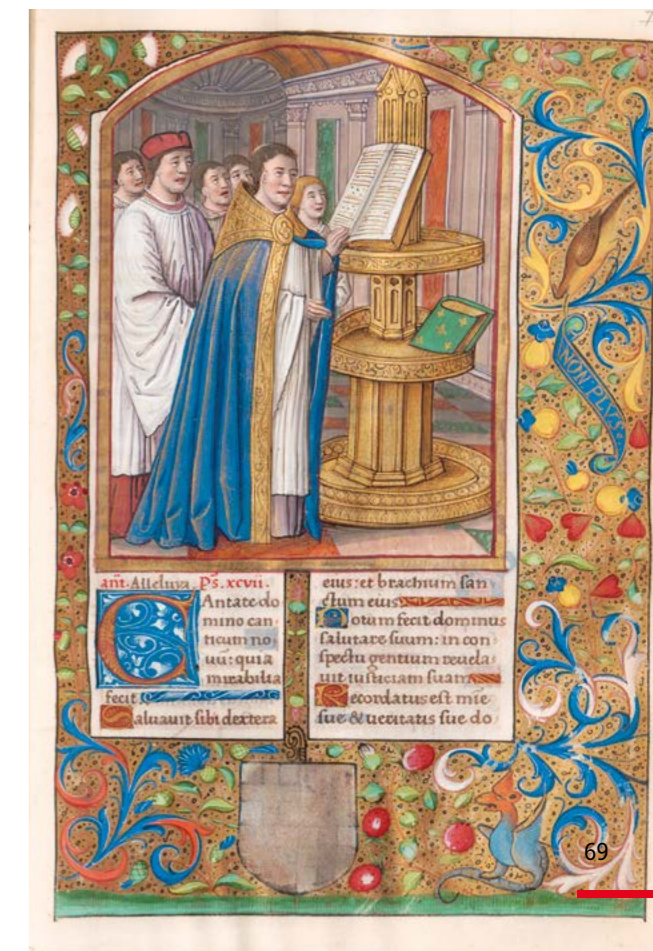 NON PLVS
añt. Alleluya. Ps. xcvii.
CAntate do
mino can
ticum no
uū: quia
mirabilia
fecit
Saluauit sibi dextera
eius: et brachium san
ctum eius
Notum fecit dominus
salutare suum: in con
spectu gentium reuela
uit iusticiam suam
Recordatus est mīe
sue & ueritatis sue do
69